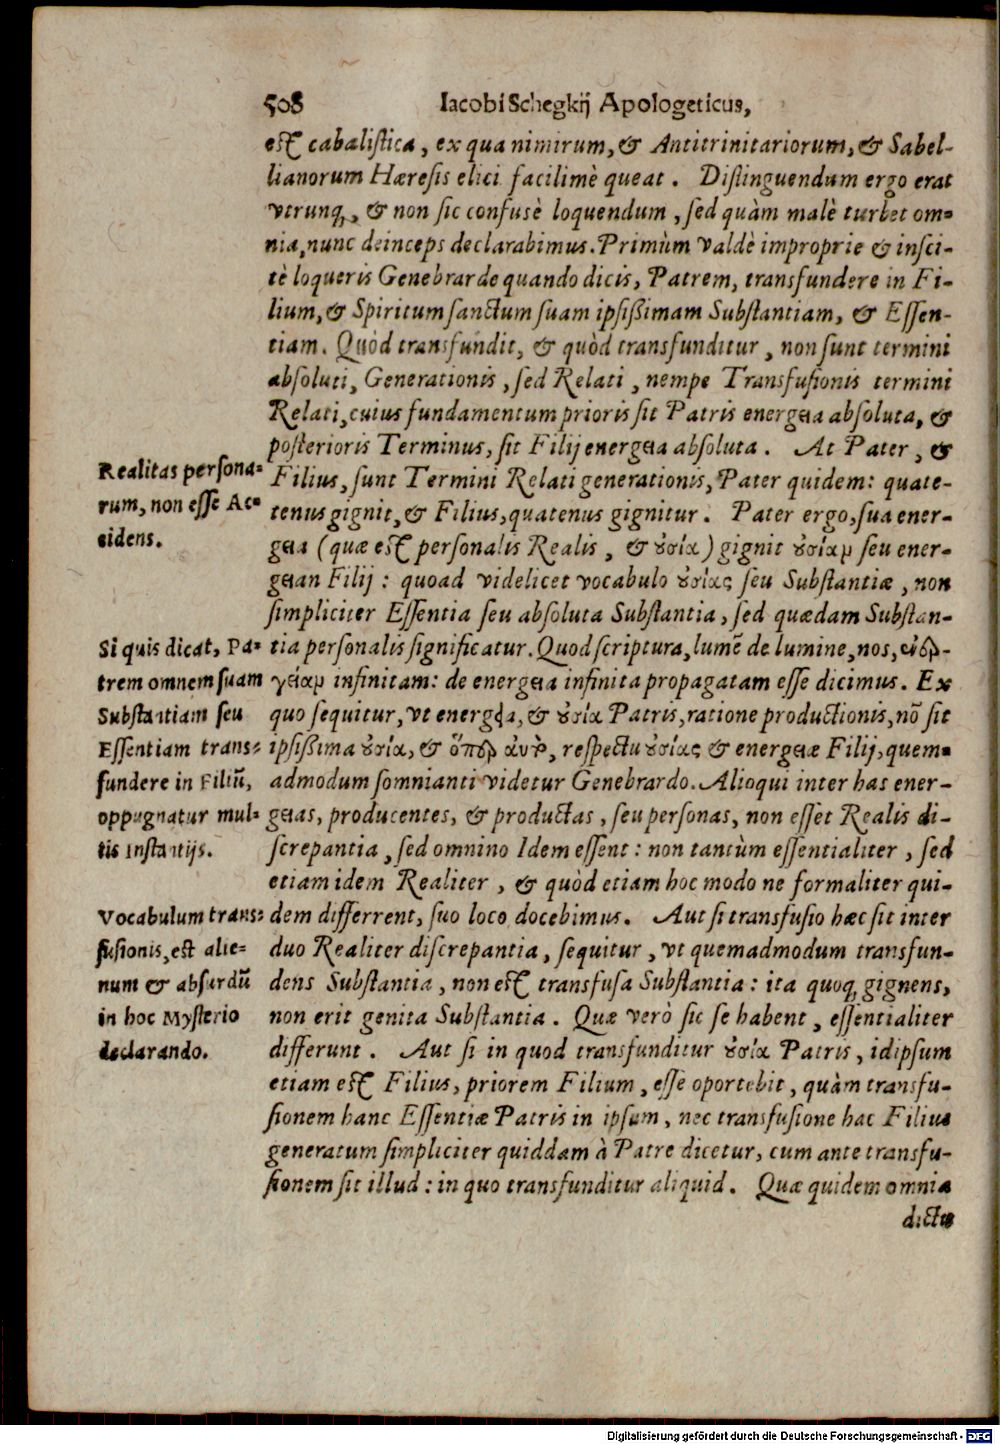 508 Iacobi Schegkij Apologeticus,
est cabalistica, ex qua nimirum, & Antitrinitariorum, & Sabel-
lianorum Hæresis elici facilimè queat. Distinguendum ergo erat
vtrunq;, & non sic confusè loquendum, sed quàm malè turbet om=
nia, nunc deinceps declarabimus. Primùm valdè improprie & insci-
tè loqueris Genebrarde quando dicis, Patrem, transfundere in Fi-
lium, & Spiritum sanctum suam ipsißimam Substantiam, & Essen-
tiam. Quòd transfundit, & quòd transfunditur, non sunt termini
absoluti, Generationis, sed Relati, nempe Transfusionis termini
Relati, cuius fundamentum prioris sit Patris energeia absoluta, &
posterioris Terminus, sit Filij energeia absoluta. At Pater, &
Filius, sunt Termini Relati generationis, Pater quidem: quate-
tenus gignit, & Filius, quatenus gignitur. Pater ergo, sua ener-
geia (quæ est personalis Realis, & ȣσία) gignit ȣσίαμ seu ener-
geian Filij: quoad videlicet vocabulo ȣσίας seu Substantiæ, non
simpliciter Essentia seu absoluta Substantia, sed quædam Substan-
tia personalis significatur. Quod scriptura, lumē de lumine, nos, ἐνέρ-
γειαμ infinitam: de energeia infinita propagatam esse dicimus. Ex
quo sequitur, vt energeia, & ȣσία Patris, ratione productionis, nō sit
ipsißima ȣσία, & ὅπερ respectu ȣσίας & energeiæ Filij, quem=
admodum somnianti videtur Genebrardo. Alioqui inter has ener-
geias, producentes, & productas, seu personas, non esset Realis di-
screpantia, sed omnino Idem essent: non tantùm essentialiter, sed
etiam idem Realiter, & quòd etiam hoc modo ne formaliter qui-
dem differrent, suo loco docebimus. Aut si transfusio hæc sit inter
duo Realiter discrepantia, sequitur, vt quemadmodum transfun-
dens Substantia, non est transfusa Substantia: ita quoq; gignens,
non erit genita Substantia. Quæ verò sic se habent, essentialiter
differunt. Aut si in quod transfunditur ȣσία Patris, idipsum
etiam est Filius, priorem Filium, esse oportebit, quàm transfu-
sionem hanc Essentiæ Patris in ipsum, nec transfusione hac Filius
generatum simpliciter quiddam à Patre dicetur, cum ante transfu-
sionem sit illud: in quo transfunditur aliquid. Quæ quidem omnia
dicta
Realitas persona=
rum, non esse Ac=
cidens.
Si quis dicat, Pa=
trem omnem suam
Substantiam seu
Essentiam trans=
fundere in Filiū,
oppugnatur mul=
tis instantijs.
Vocabulum trans=
fusionis, est alie=
num & absurdū
in hoc Mysterio
declarando.
Digitalisierung gefördert durch die Deutsche Forschungsgemeinschaft - DFG